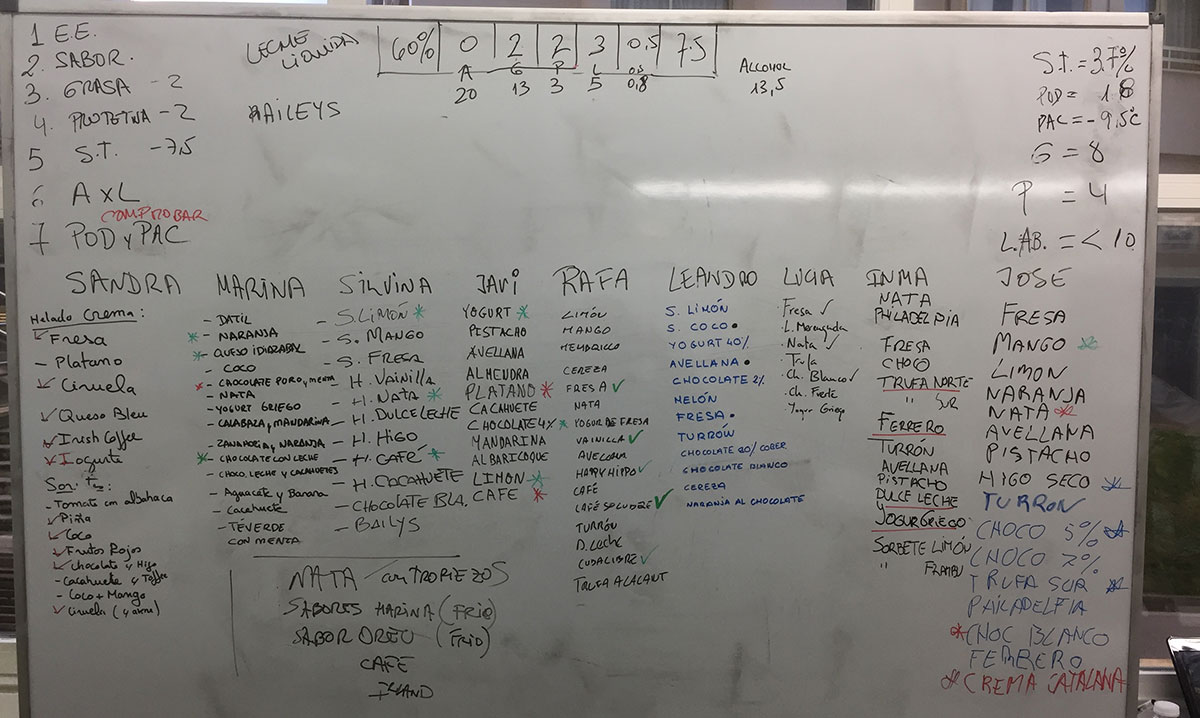 1 E.E.
2. SABOR.
3. GRASA - 2
4. PROTEINA - 2
5 S.T. - 7,5
6 A x L
COMPROBAR
7 POD y PAC
LECHE LIQUIDA
60% 0 2 2 3 0,5 7,5
A G P L
20 13 3 5 0,8
ALCOHOL
13,5
BAILEYS
S.T. = 37%
POD = 18
PAC = -9,5ºC
G = 8
P = 4
L.AB. = < 10
SANDRA
Helado Crema:
Fresa
- Platano
Ciruela
Queso Bleu
Irish Coffee
Iogurte
- Tomate con albahaca
Piña
Coco
Frutos Rojos
Chocolate y Higo
- Cacahuete y Toffee
- Coco + Mango
Ciruela
MARINA
- DATIL
* - NARANJA
* - QUESO IDIAZABAL
- COCO
* - CHOCOLATE PURO y MENTA
- NATA
- YOGURT GRIEGO
- CALABAZA y MANDARINA
- ZANAHORIA y NARANJA
* - CHOCOLATE CON LECHE
- CHOCO. LECHE y CACAHUETES
- Aguacate y Banana
- Cacahuete
- TÉ VERDE
CON MENTA
SILVINA
- S. LIMÓN *
- S. MANGO
- S. FRESA
- H. VAINILLA
- H. NATA *
- H. DULCE LECHE
- H. HIGO
- H. CAFÉ *
- H. CACAHUETE
- CHOCOLATE BLA.
- BAILYS
JAVI
YOGURT *
PISTACHO
AVELLANA
ALMENDRA
PLATANO *
CACAHUETE
CHOCOLATE 4%
MANDARINA
ALBARICOQUE
LIMON *
CAFE *
RAFA
LIMÓN
MANGO
MEMBRILLO
CEREZA
FRESA ✓
NATA
* YOGUR DE FRESA
VAINILLA ✓
AVELLANA
HAPPY HIPPO ✓
CAFÉ
CAFÉ SOLUBLE ✓
TURRÓN
D. Leche
CUBALIBRE ✓
TRUFA ALACANT
LEANDRO
S. LIMÓN
S. COCO •
YOGURT 40%
AVELLANA •
CHOCOLATE 2%
MELÓN
FRESA •
TURRÓN
CHOCOLATE 20% COBER
CHOCOLATE BLANCO
CEREZA
NARANJA AL CHOCOLATE
LUCIA
- Fresa ✓
- L. Merengada
- Nata ✓
- Trufa
- Ch. Blanco ✓
- Ch. Fuerte
- Yogur Griego
INMA
NATA
PHILADELPIA
FRESA
CHOCO
TRUFA NORTE
" SUR
FERRERO
TURRÓN
AVELLANA
PISTACHO
DULCE LECHE
y
YOGUR GRIEGO
SORBETE LIMÓN
" FRAMBU
JOSE
FRESA
MANGO *
LIMON
NARANJA
NATA *
AVELLANA
PISTACHO
HIGO SECO *
TURRON
CHOCO 5% *
CHOCO 2%
TRUFA SUR *
PHILADELFIA
* CHOC BLANCO
FERRERO
* CREMA CATALANA
NATA con TROPIEZOS
SABORES MARINA (FRIO)
SABOR OREO (FRIO)
CAFE